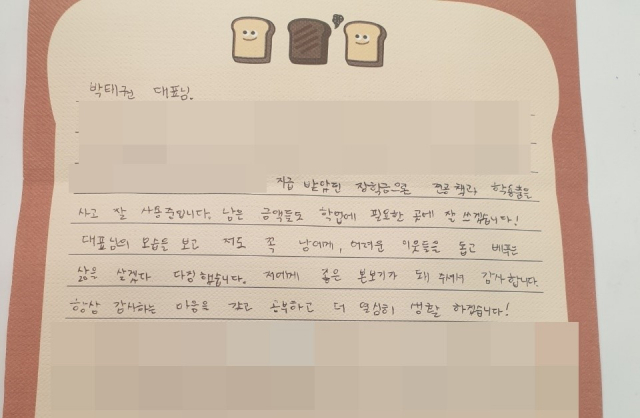 박태권 대표님.
지급 받았던 장학금으로 전공 책과, 학용품을
사고 잘 사용중입니다. 남은 금액들도 학업에 필요한 곳에 잘 쓰겠습니다!
대표님의 모습을 보고 저도 꼭 남에게, 어려운 이웃들을 돕고 베푸는
삶을 살겠다 다짐 했습니다. 저에게 좋은 본보기가 돼 주셔서 감사합니다.
항상 감사하는 마음을 갖고 공부하고 더 열심히 생활 하겠습니다!